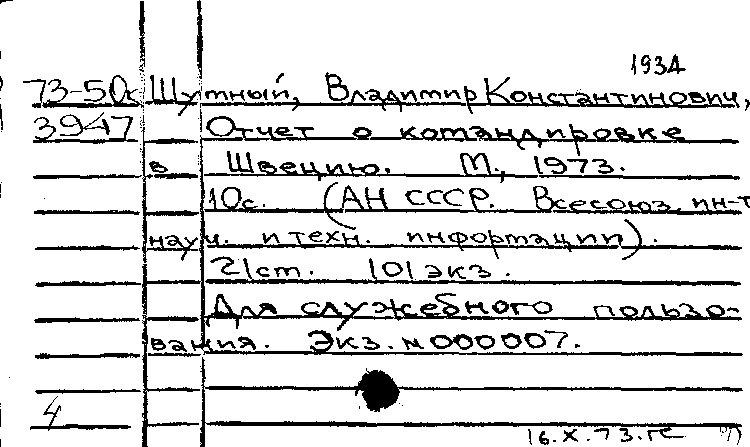 1934
73-50с Шутный, Владимир Константинович,
3947 Отчет о командировке
в Швецию. М., 1973.
10с. (АН СССР. Всесоюз. ин-т
науч. и техн. информации).
21см. 101экз.
Для служебного пользо-
вания. Экз. №000007.
4
16.X.73.